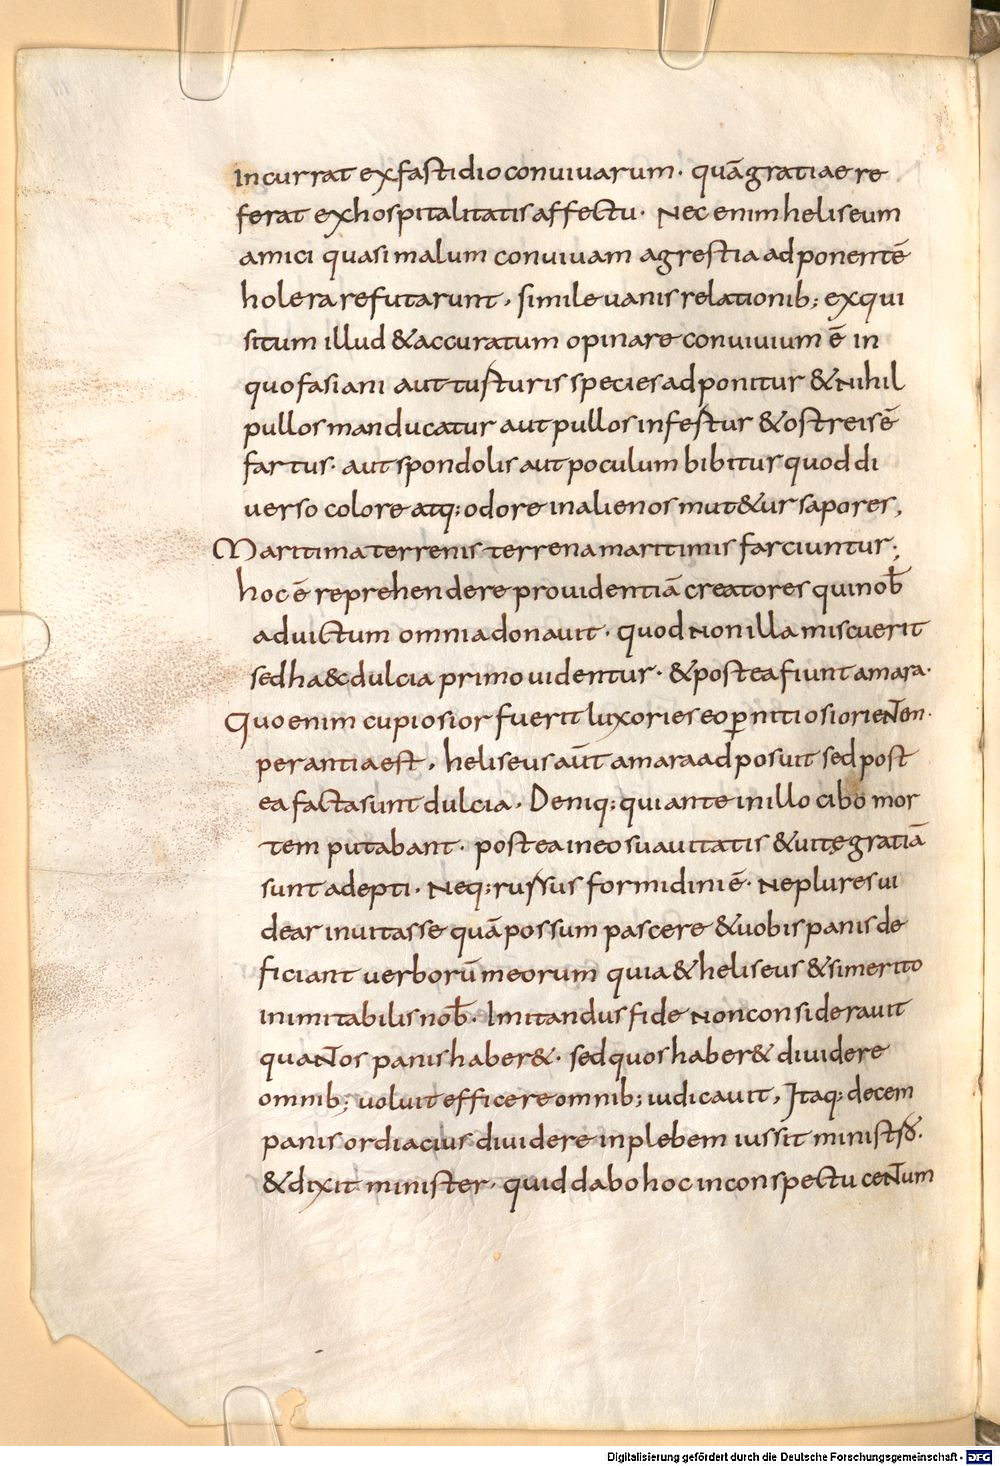 incurrat exfastidio conuiuarum · quā gratiae re
ferat exhospitalitatis affectu · Nec enim heliseum
amici quasi malum conuiuam agrestia adponentē
holera refutarunt, simile uanis relationib; exqui
situm illud & accuratum opinare conuiuium ē in
quo fasiani aut turturis species adponitur & Nihil
pullos manducatur aut pullos infertur & ostreis ē
fartus · aut spondolis aut poculum bibitur quod di
uerso colore atq; odore inalienos mut&ur sapores,
Maritima terrenis terrena maritimis farciuntur;
hoc ē reprehendere prouidentiā creatores qui nob̄
aduictum omnia donauit · quod Non illa miscuerit
sed ha&c dulcia primo uidentur · & postea fiunt amara ·
Quo enim cupiosior fuerit luxories eo ꝑnitiosior ieNen·
perantia est, heliseus aūt amara adposuit sed post
ea facta sunt dulcia · Deniq; qui ante in illo cibo mor
tem putabant · postea ineo suauitatis & uitę gratiā
sunt adepti · Neq; rursus formidini ē · Ne plures ui
dear inuitasse quā possum pascere & uobis panis de
ficiant uerborū meorum quia & heliseus & si merito
inimitabilis nob̄ · Imitandus fide Non considerauit
quaNtos panis haber& · sed quos haber& diuidere
omnib; uoluit efficere omnib; iudicauit, Itaq; decem
panis ordiacius diuidere inplebem iussit
& dixit minister · quid dabo hoc inconspectu ceNtum
Digitalisierung gefördert durch die Deutsche Forschungsgemeinschaft - DFG